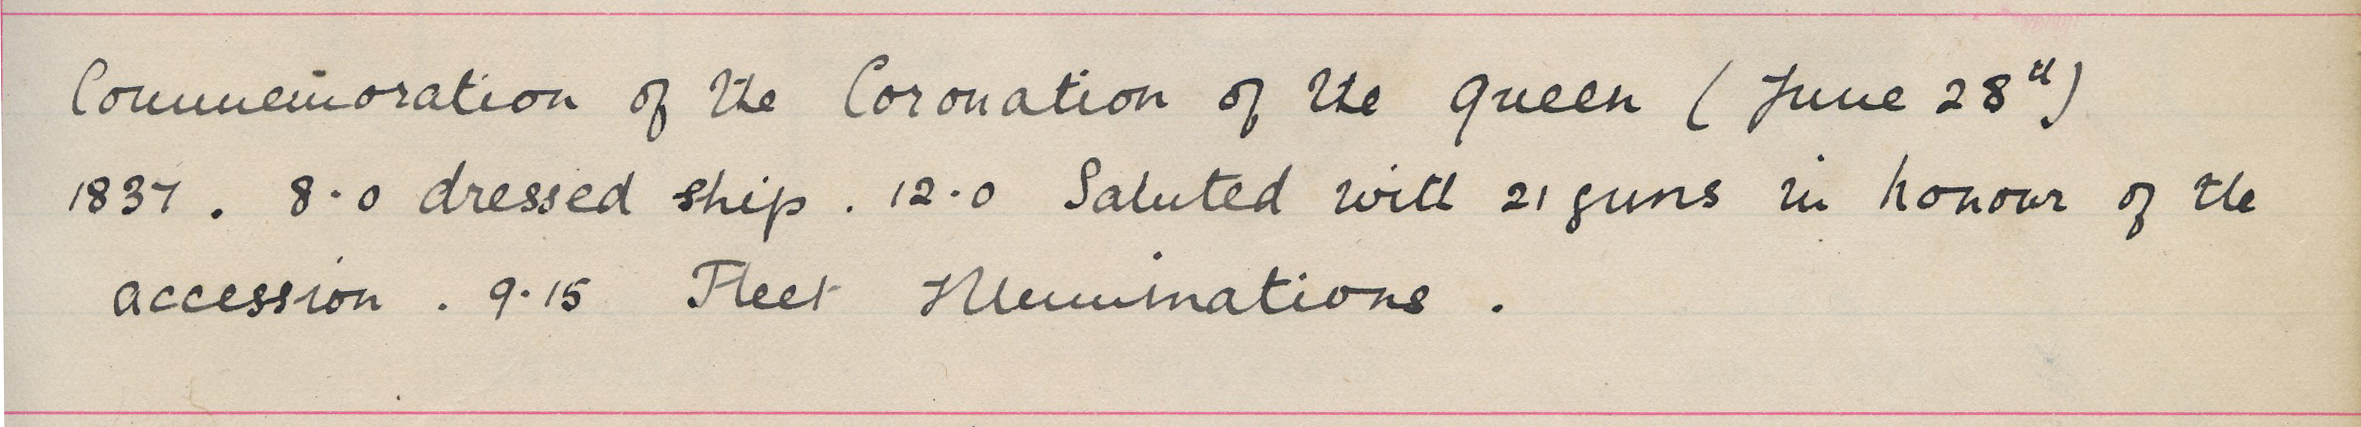 Commemoration of the Coronation of the Queen (June 28th)
1837. 8.0 dressed ship. 12.0 Saluted with 21 guns in honour of the
accession. 9.15 Fleet Illuminations.